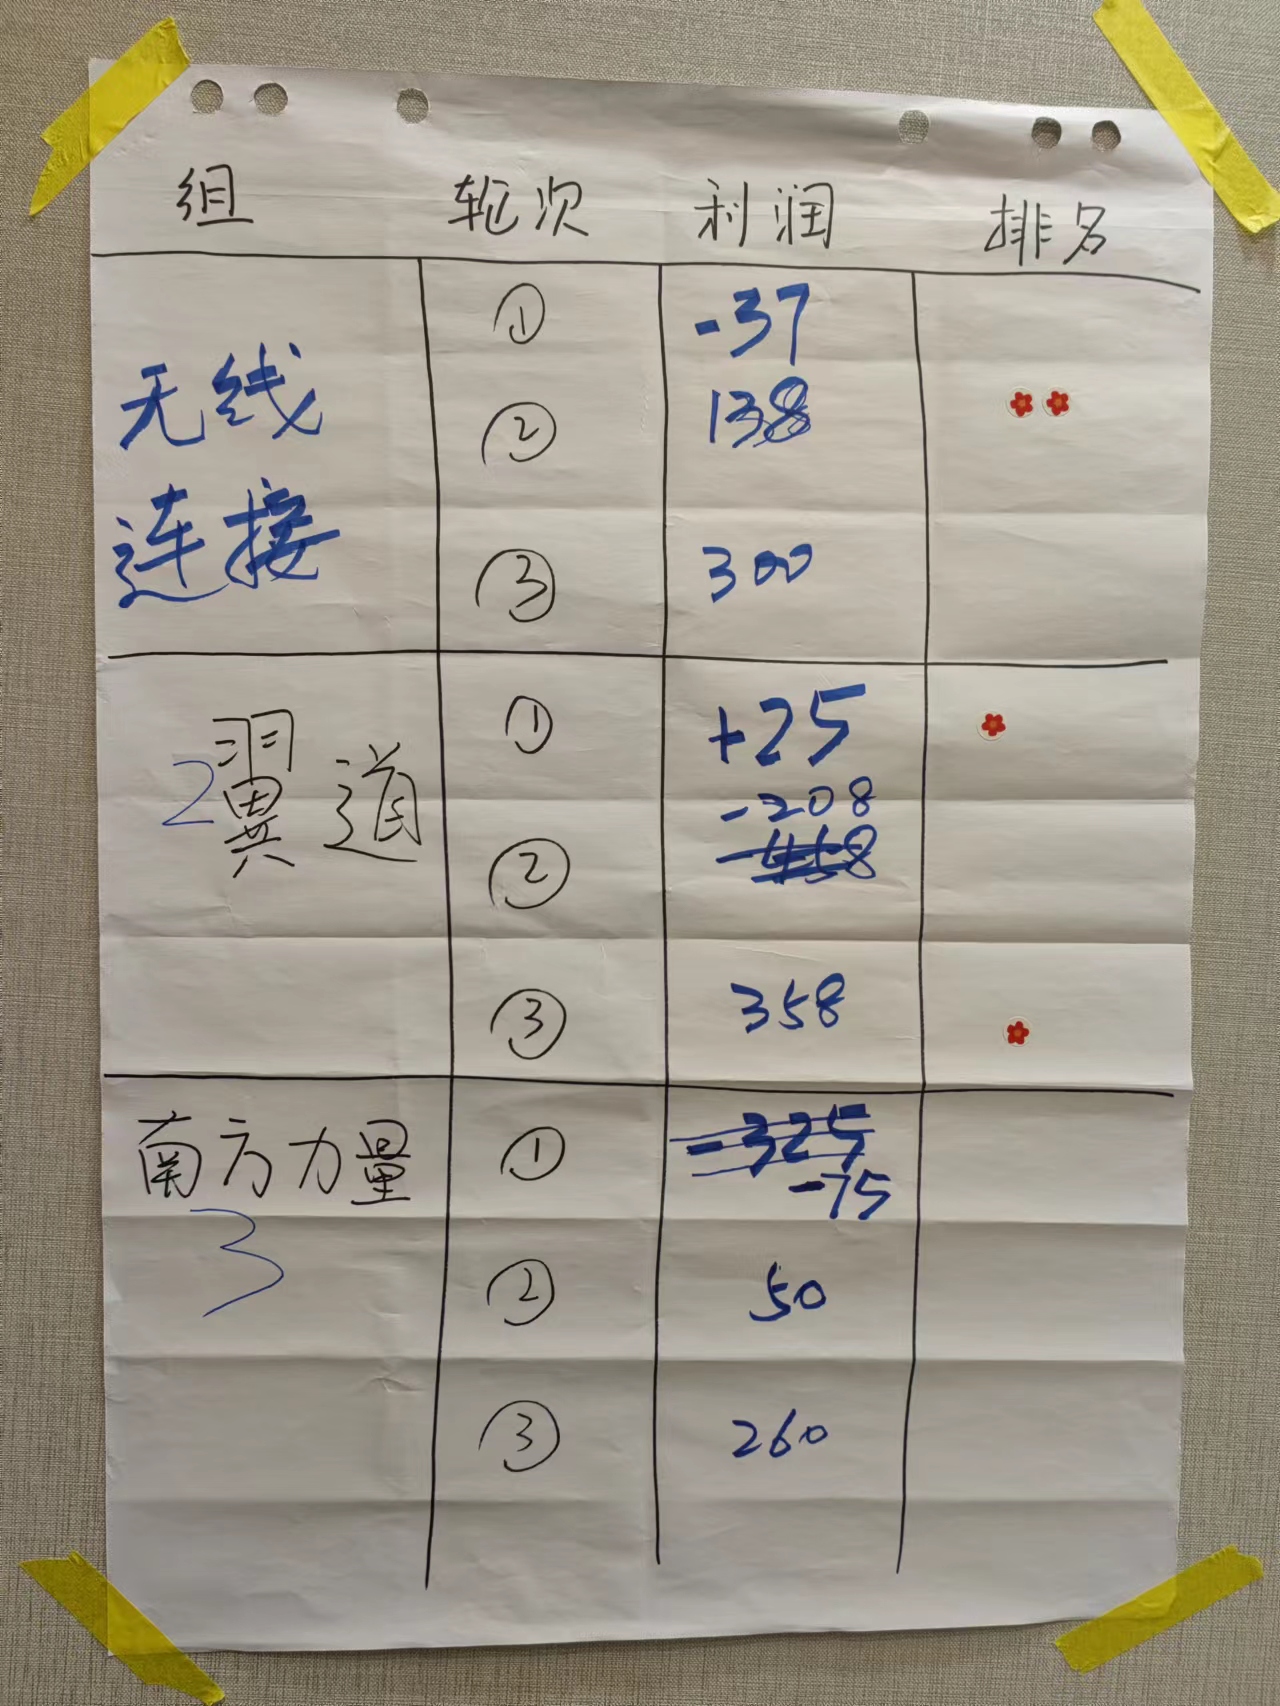 组 轮次 利润 排名
无线
连接
① -37
② 138
③ 300
2翼道
① +25
-208
② -458
③ 358
南方力量
3
① -325
-75
② 50
③ 260